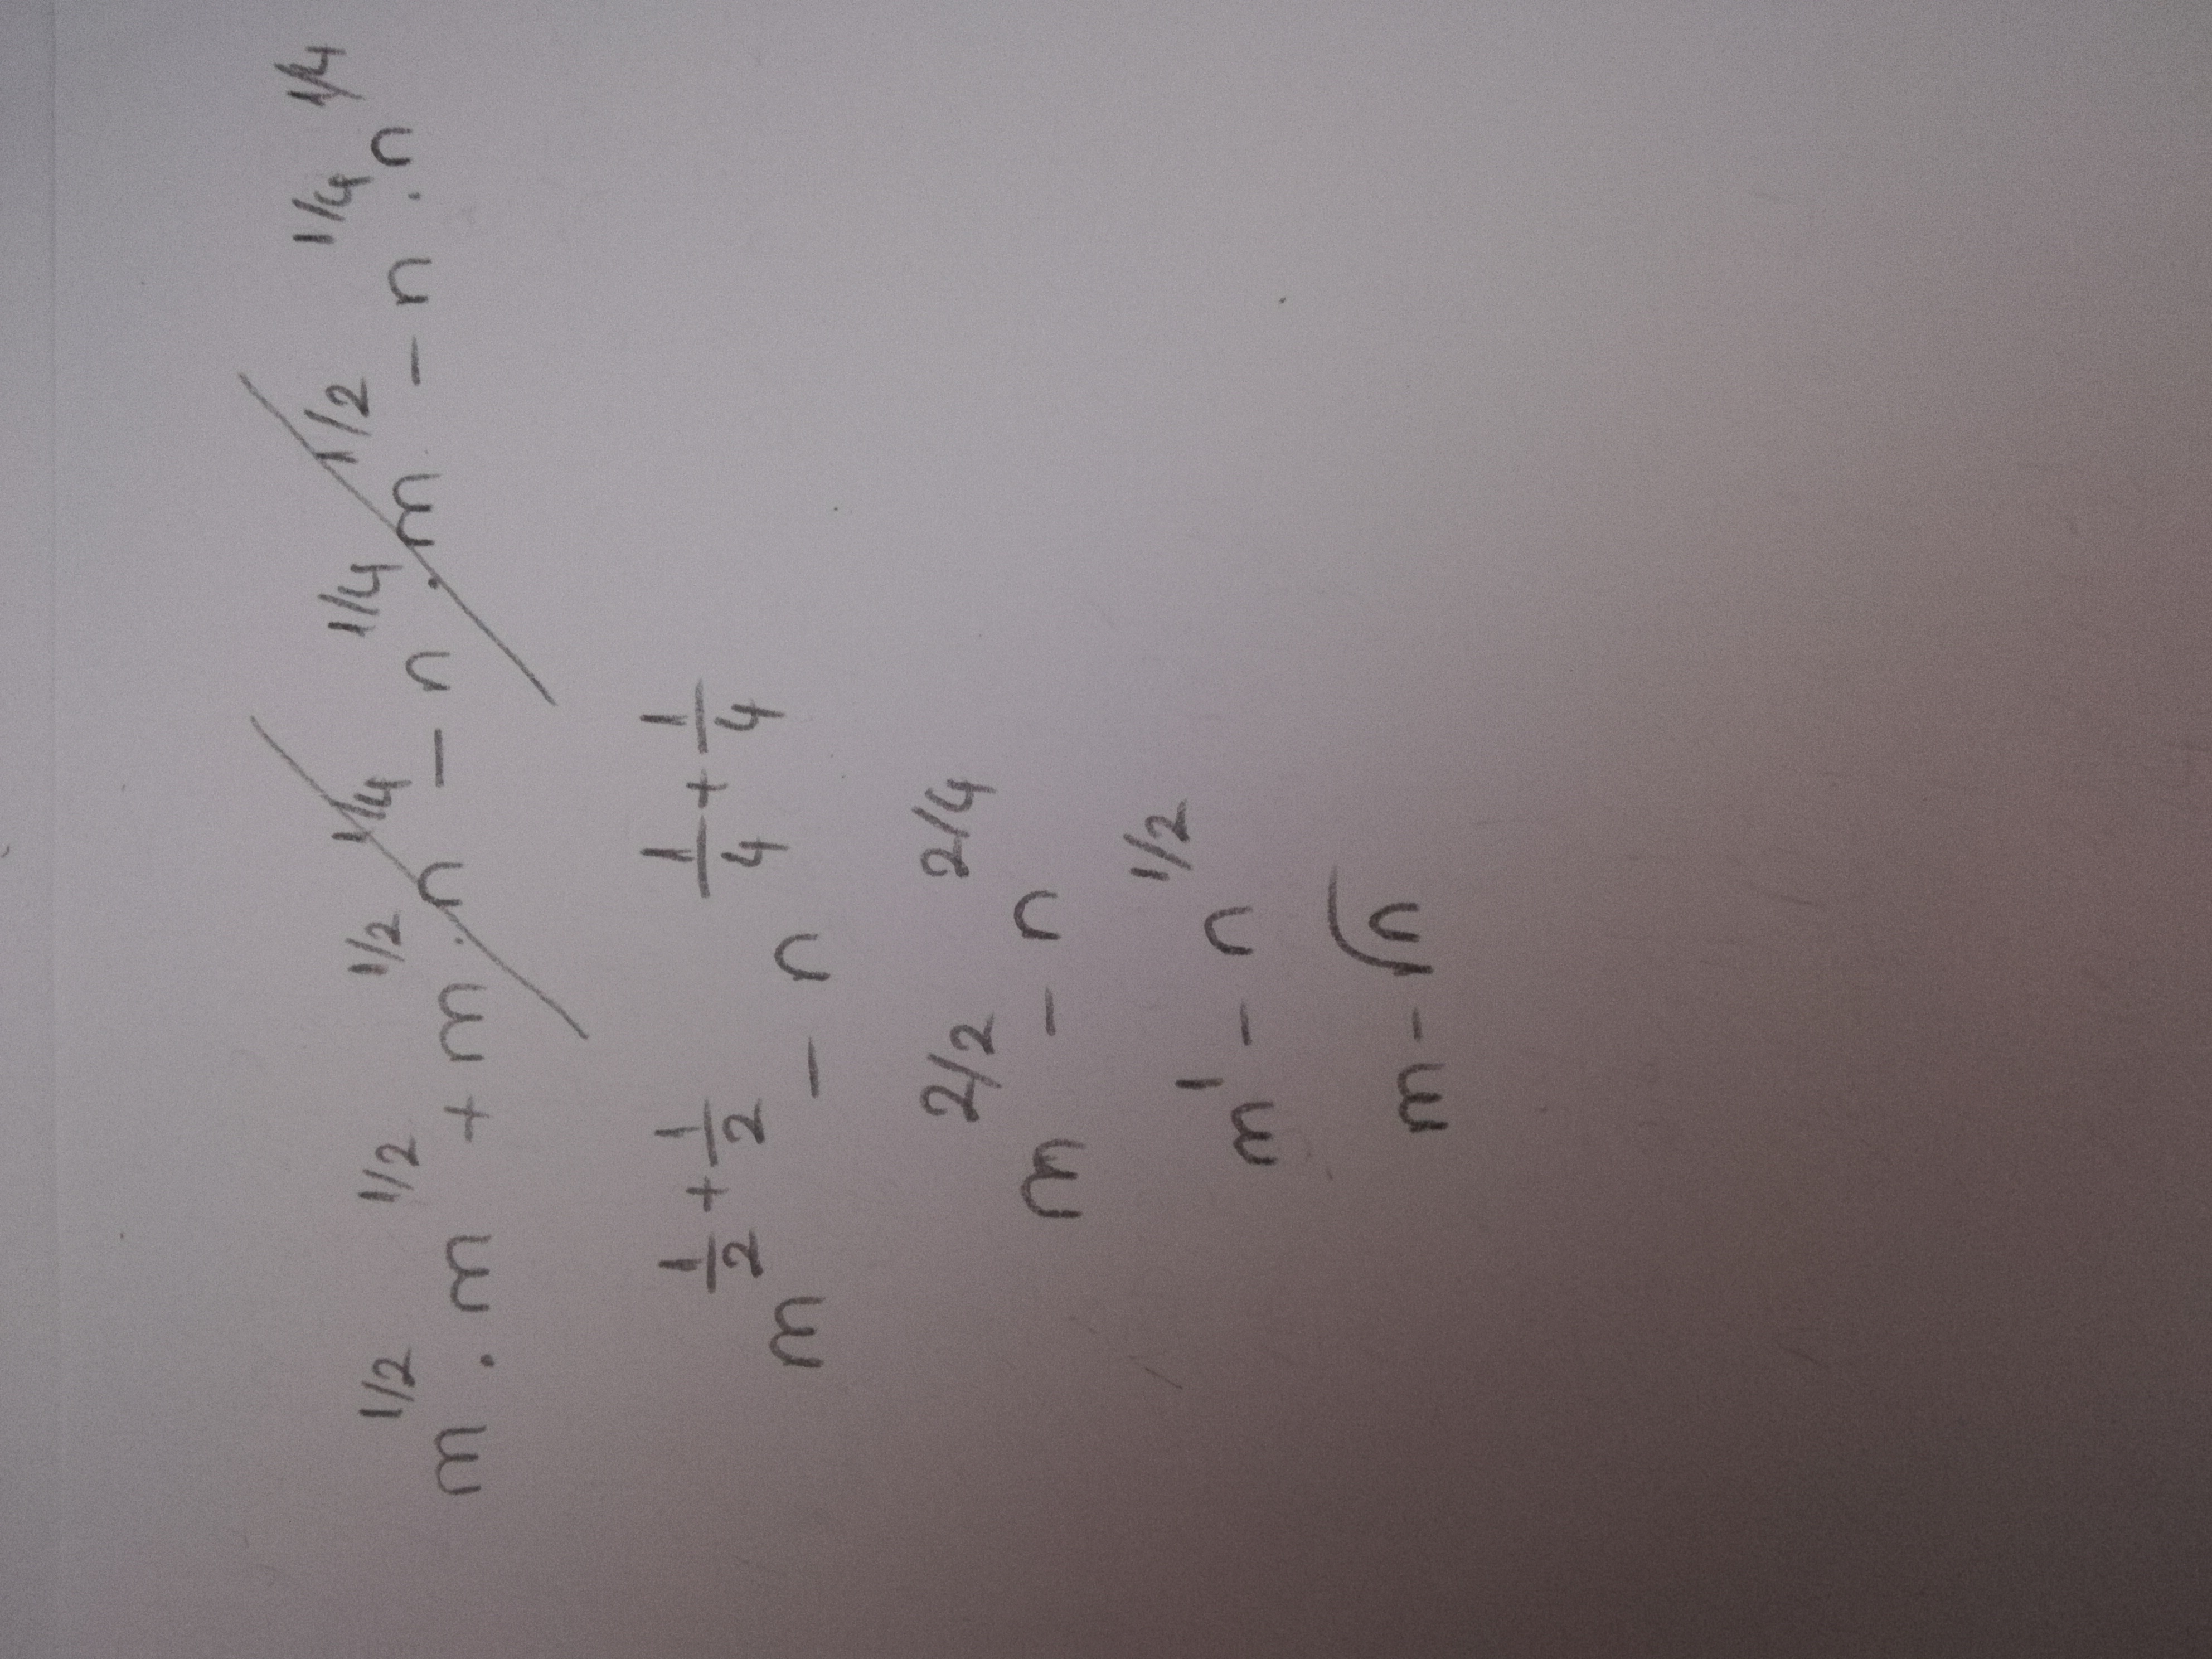 m^1/2 . m^1/2 + m^1/2 . n^1/4 - n^1/4 . m^1/2 - n^1/4 . n^1/4
m^(1/2 + 1/2) - n^(1/4 + 1/4)
m^2/2 - n^2/4
m^1 - n^1/2
m - √n